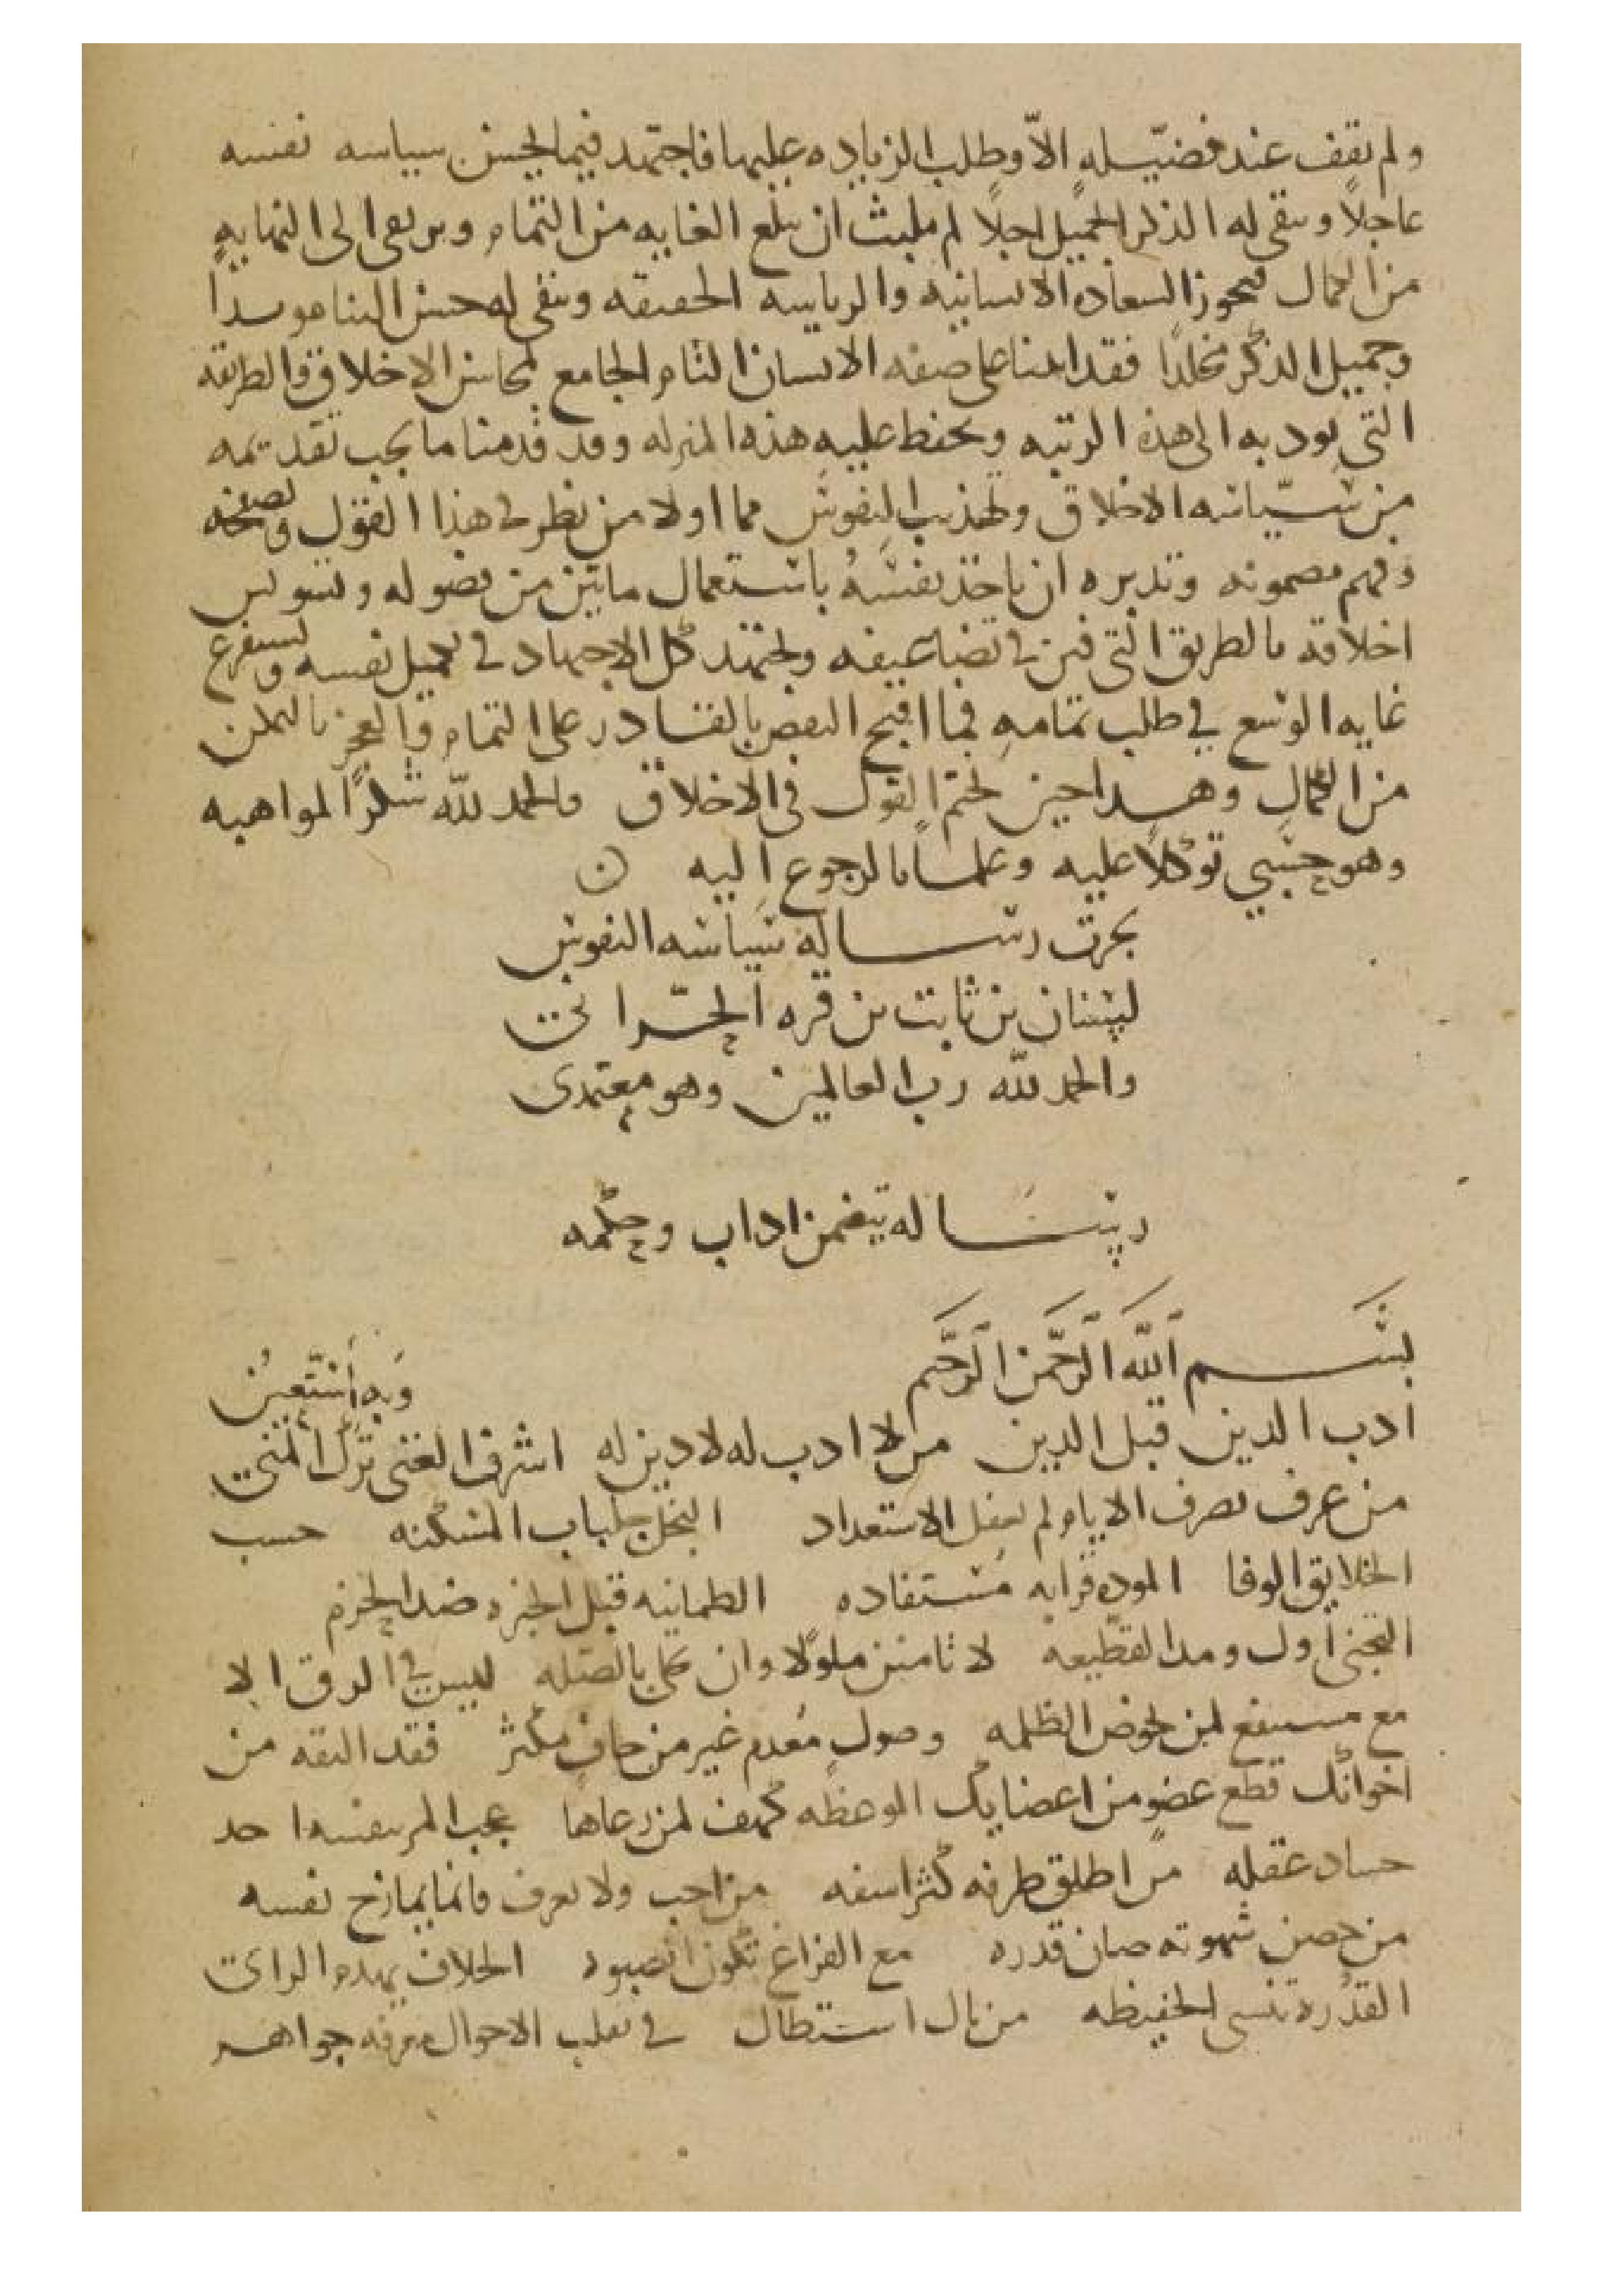 ولم يقف عند فضيّله الاّ وطلب الزياده عليها فاجتهد فيما يحسن سياسه نفسه
عاجلاً ويبقى له الذكر الجميل اجلاً لم يلبث ان يبلغ الغايه من التمام ويرتقي الى النهايه
من الكمال فيحوز السعاده الانسانيه والرياسه الحقيقه ويبقى له حسن الثنا موبداً
وجميل الذكر مخلداً فقد اتينا على صفه الانسان التام الجامع لمحاسن الاخلاق والطريقه
التي تود به الى هذه الرتبه وتحفظ عليه هذه المنزله وقد قدمنا ما يجب تقديمه
من سياسه الاخلاق وتهذيب النفوس مما اولا من نظر في هذا القول وتصفحه
وفهم مضمونه وتدبره ان ياخذ نفسهُ باستعمال ما بيّن من فصوله ويسوس
اخلاقه بالطريق التي في تضاعيفه ويجتهد كل الاجتهاد في تكميل نفسه ويستفرغ
غايه الوسع في طلب تمامهِ فما اقبح النقص بالقادر على التمام والعجز بالتمكن
من الكمال وهذا حين نختم القول في الاخلاق والحمد لله شكراً لمواهبه
وهو حسبي توكلاً عليه وعلماً بالرجوع اليه
نجزت رساله سياسه النفوس
لسنان بن ثابت بن قره الحرّاني
والحمد لله رب العالمين وهو معتمدى
رساله تتضمن اداب وحكمه
بسم الله الرحمن الرحيم
وبه أستعينُ
ادب الدين قبل الدين من لا ادب له لا دين له اشرف الغنى ترك المنى
من عرف تصرف الايام لم يغفل الاستعداد البخل جلباب المسكنه حسب
الخلايق الوفا الموده قرابه مستفاده الطمانينه قبل الخبره ضد الحزم
التجنى اول القطيعه لا تامنن ملولاً وان تحلى بالصله ليس في البرق الا
مع مستمتع لمن يخوض الظلمه وصول مُعدم خير من جافٍ مكثر فقد الثقه من
اخوانك قطع عضو من اعضايك الموعظه كهف لمن رعاها عجب المر بنفسه احد
حساد عقله من اطلق طرفه كثر اسفه من احب ولا يعرف فانما يمازح نفسه
من حصن شهوته صان قدره مع الفراغ تكون الصبوه الخلاف يهدم الراى
القدُره تنسى الحفيظه من نال استطال في تقلب الاحوال معرفه جواهر